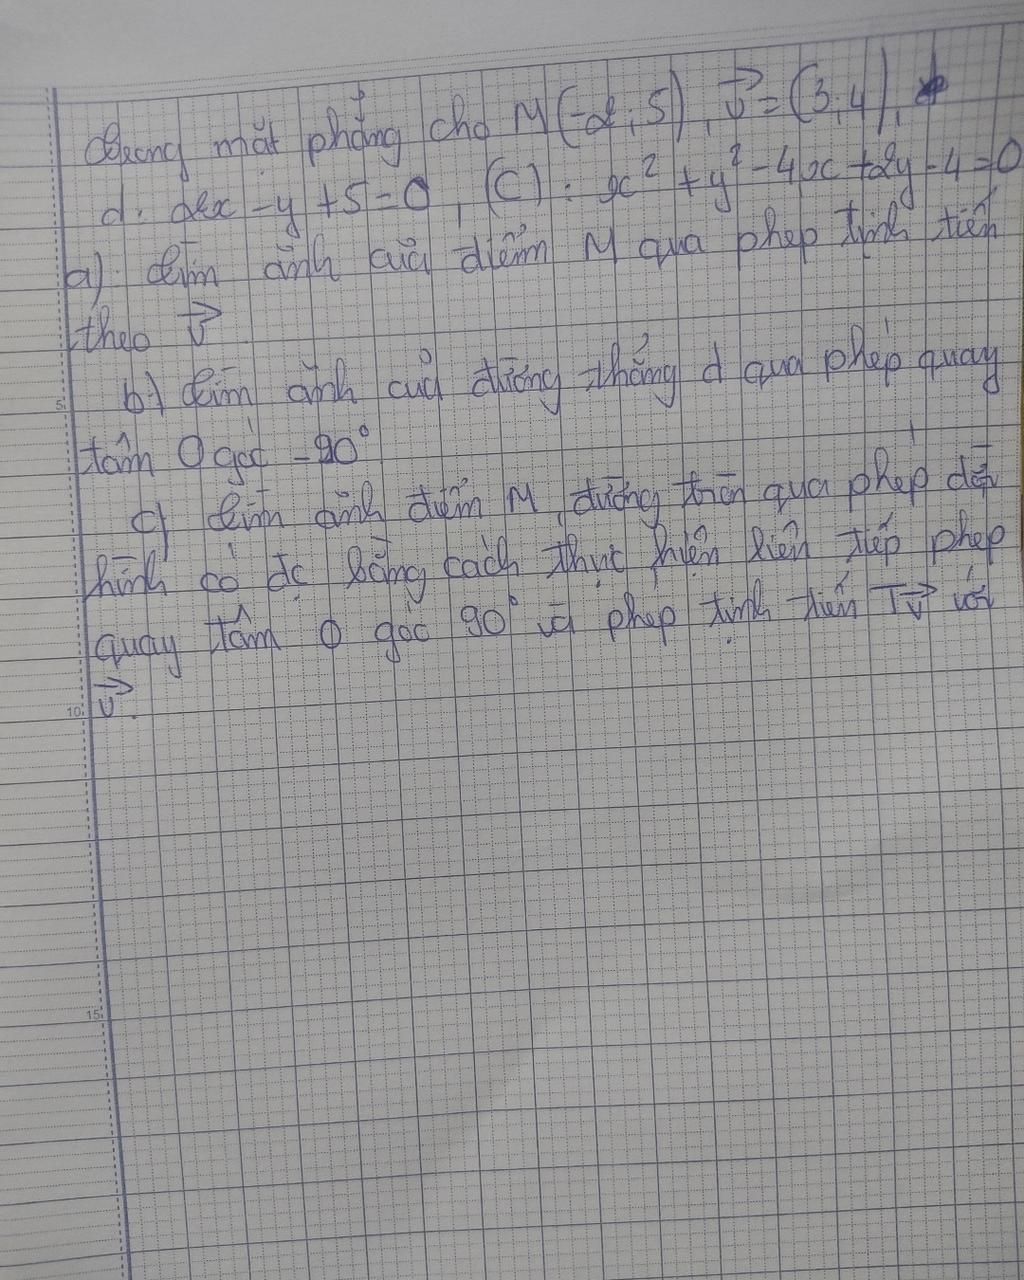 Trong mặt phẳng cho M(-2;5), v = (3;4),
d: 2x - y + 5 = 0, (C): x² + y² - 4x + 2y - 4 = 0
a) Tìm ảnh của điểm M qua phép tịnh tiến
theo v
b) Tìm ảnh của đường thẳng d qua phép quay
5
tâm O góc -90°
c) Tìm ảnh điểm M, đường tròn qua phép dời
hình có đc bằng cách thực hiện liên tiếp phép
quay tâm O góc 90° và phép tịnh tiến Tv với
v.
10
15